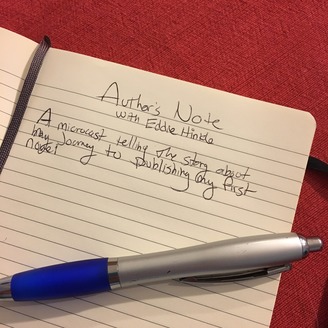 Author's Note
with Eddie Hinkle
A microcast telling the story about
my journey to publishing my first
novel